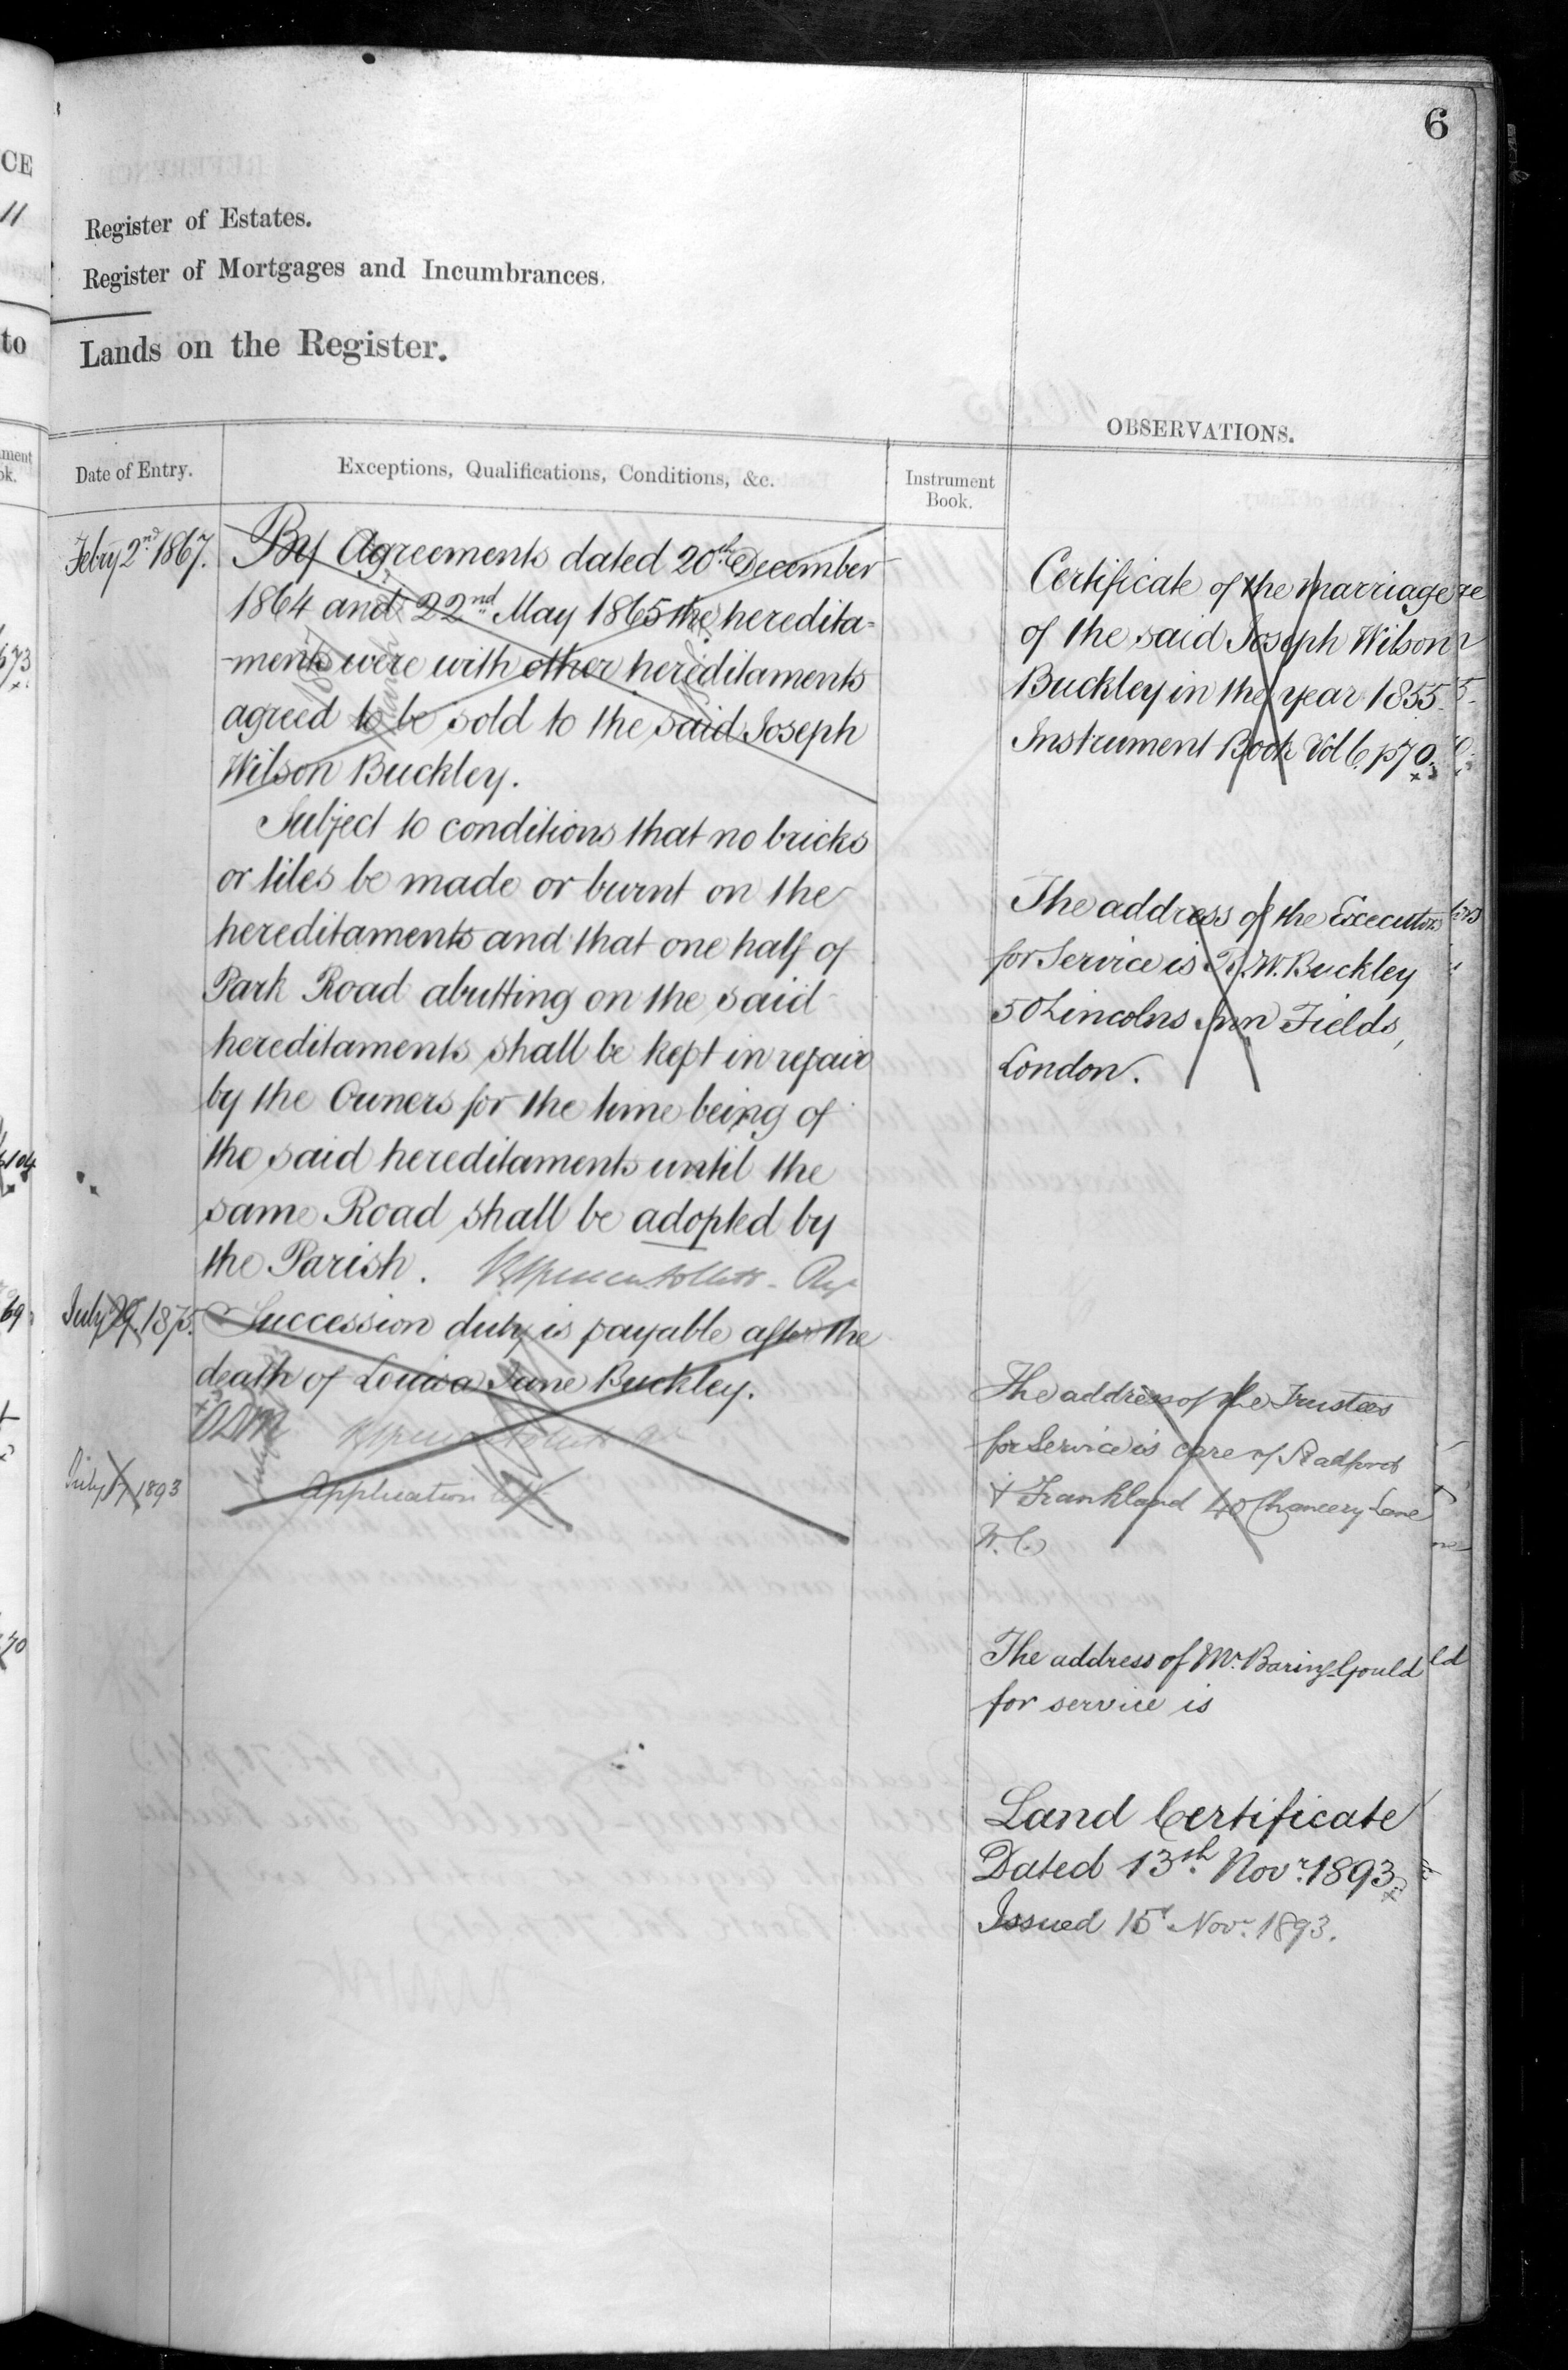 6
Register of Estates.
Register of Mortgages and Incumbrances.
Lands on the Register.
OBSERVATIONS.
Date of Entry.
Exceptions, Qualifications, Conditions, &c.
Instrument
Book.
Febry 2nd 1867.
By Agreements dated 20th December
1864 and 22nd May 1865 the heredita=
-ments were with other hereditaments
agreed to be sold to the said Joseph
Wilson Buckley.
Subject to conditions that no bricks
or tiles be made or burnt on the
hereditaments and that one half of
Park Road abutting on the said
hereditaments shall be kept in repair
by the Owners for the time being of
the said hereditaments until the
same Road shall be adopted by
the Parish.
July 29. 1875.
Succession duty is payable after the
death of Louisa Jane Buckley.
July 17 1893
Application
Certificate of the marriage
of the said Joseph Wilson
Buckley in the year 1855.
Instrument Book Vol 6. p70.
The address of the Executors
for Service is R. W. Buckley
50 Lincolns Inn Fields,
London.
The address of the Trustees
for Service is care of Radford
& Frankland 40 Chancery Lane
W.C.
The address of Mr. Baring-Gould
for service is
Land Certificate
Dated 13th Novr. 1893
Issued 15th Novr. 1893.
CE
11
to